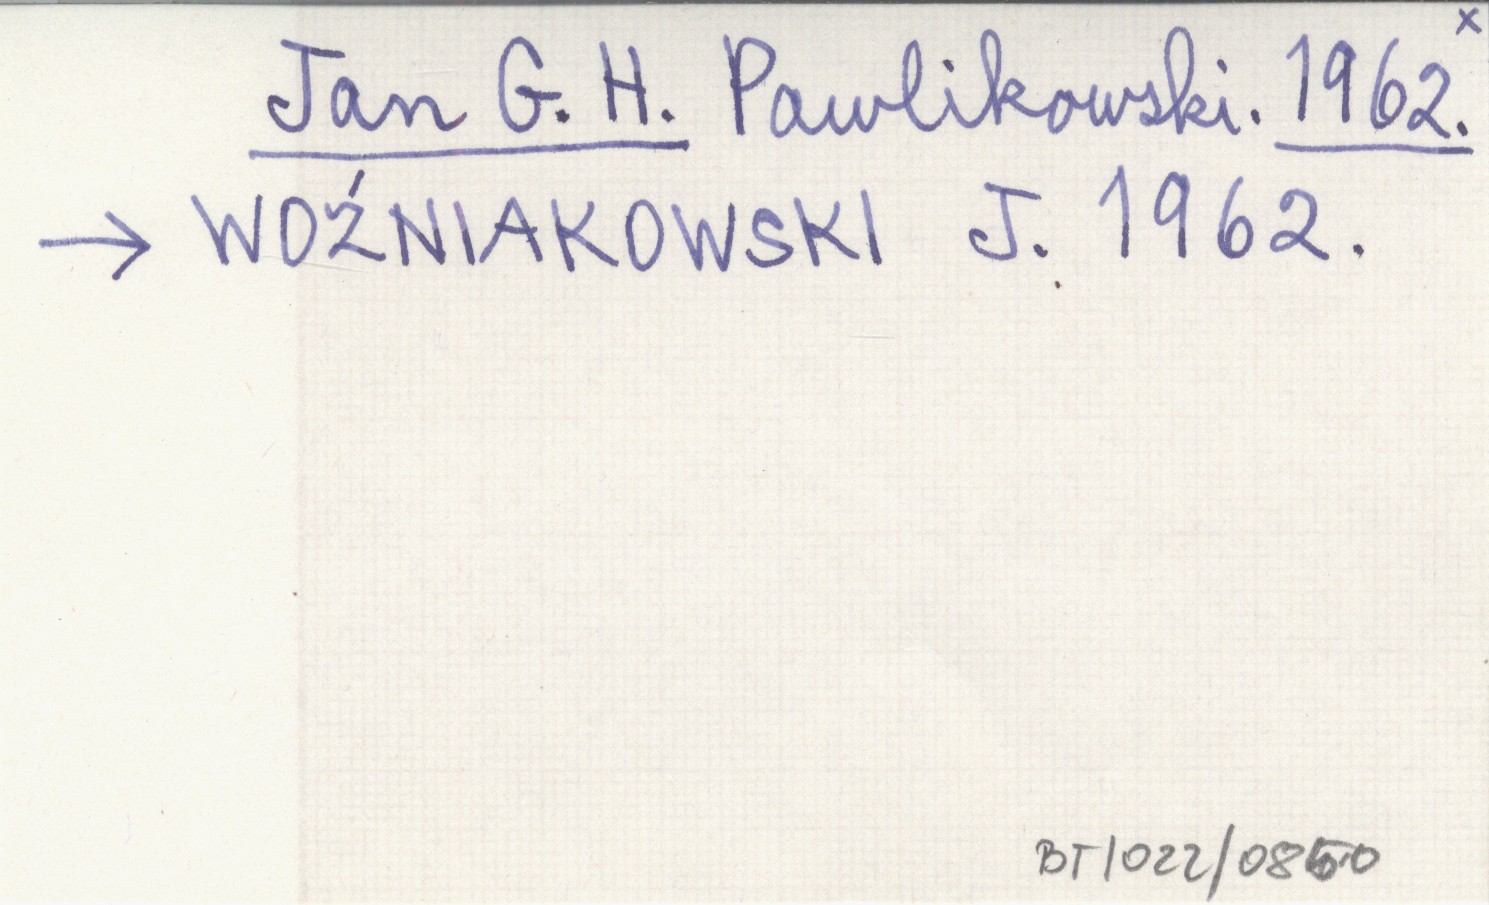 Jan G. H. Pawlikowski. 1962.x
→ WOŹNIAKOWSKI J. 1962.
BT/022/0850